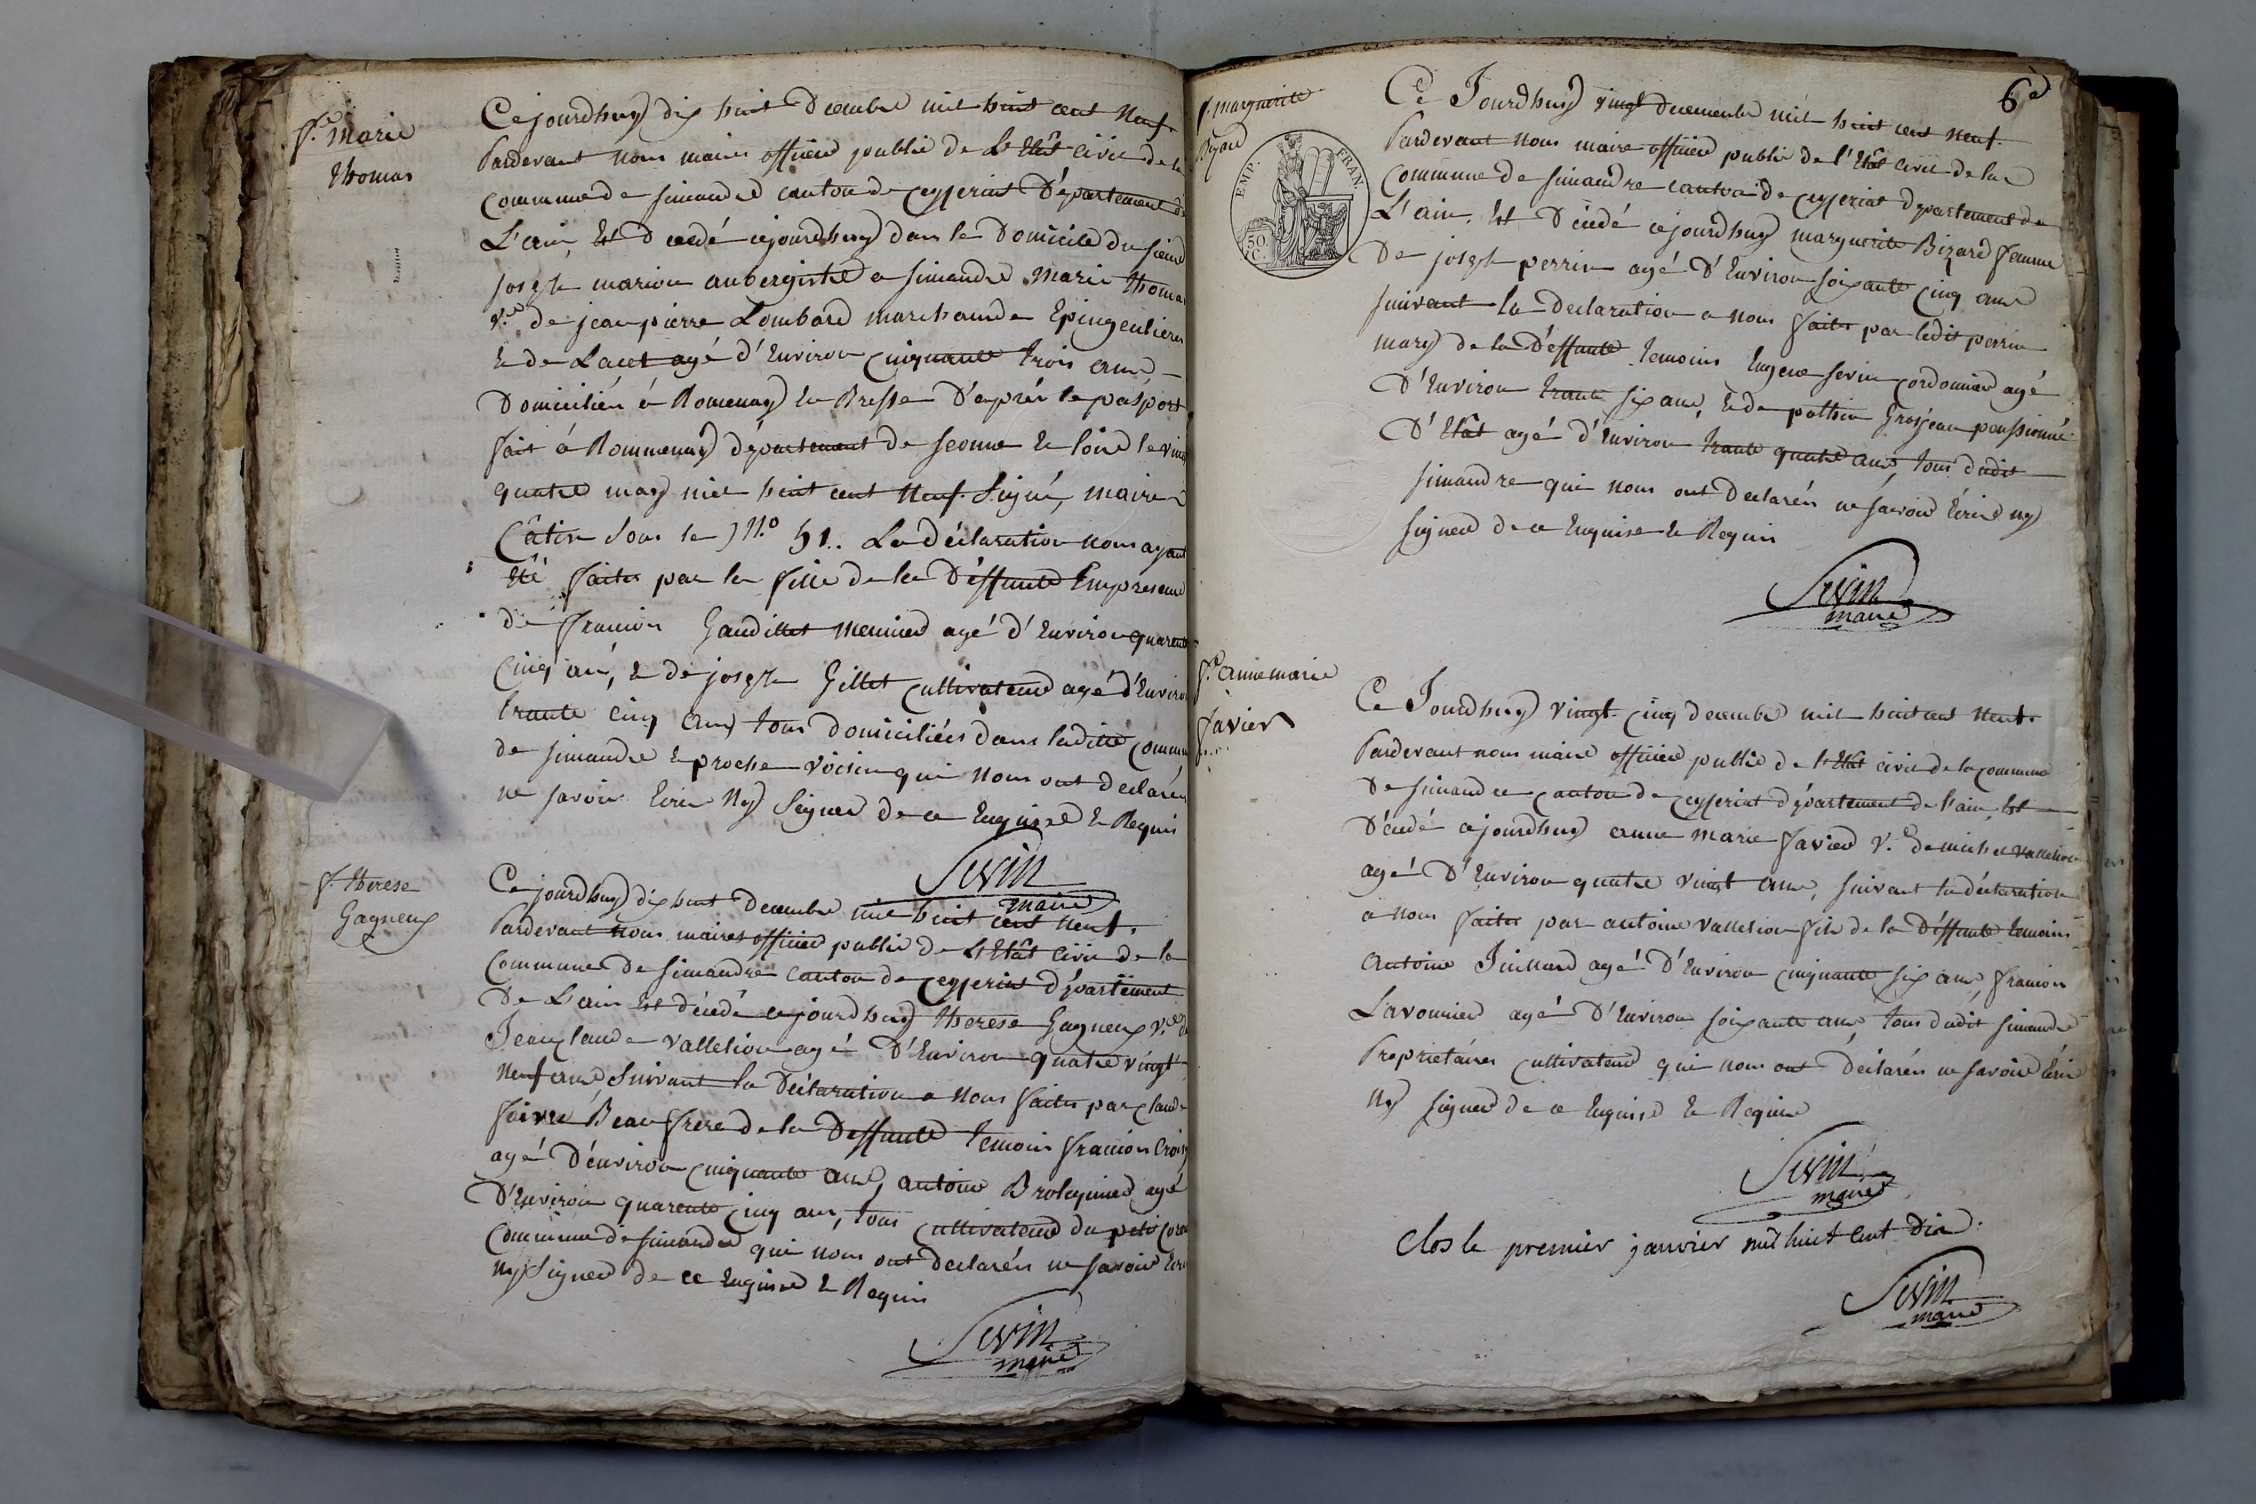 f.e marie
thomas
Cejourdhuy dix huit Decembre mil huit cent Neuf.
Pardevant nous maires officier public de L'Etât civil de la
commune de simandre canton de ceyzeriat Département de
L'ain, Est Décédé cejourdhuy dans le Domicile du sieur
joseph marion aubergiste a simandre Marie thomas
v.e de jean pierre Lombard marchande Epingeulieres
& de Lacet agé d'Environ cinquante trois ans,
Domiciliée á Romenay En Bresse D'aprés le pasport
fait á Rommenay département de seonne & loire le vingt
quatre may mil huit cent Neuf. Signé, maire
Câtin sous le N.o 51.. La déclaration nous ayant
Eté faite par la fille de la Déffunte En presence
de francois Gaudillet Meunier agé d'Environ quarente
Cinq ans, & de joseph Gillet cultivateur agé d'Environ
trante cinq ans, tous domiciliées dans laditte commune
de simandre & proche voisin qui nous ont declarés
ne savoir Ecrire Ny Signer de ce Enquise & Requis
Sevin
maire
f. therese
Gagneux
Cejourdhuy dix huit Decembre mil huit cent Neuf.
Pardevant nous maires officier public de L'Etât civil de la
Commune De simandre canton de ceyzeriat département
De L'ain Est décédé cejourdhuy therese Gagneux v.e de
Jean claude valletion agé D'Environ quatre vingt
Neuf ans, suivant la Déclaration a nous faite par claude
faivre Beau frere de la Deffunte temoin francois Croisy
agé D'environ cinquante ans, antoine Brolyimier agé
D'Environ quarente cinq ans, tous cultivateur du petit coran
Commune de simandre qui nous ont declarés ne savoir Ecrire
Ny Signer de ce Enquise & Requis
Sevin
maire
f. marguerite
Bizard
EMP. FRAN.
50.
C.
6e
Ce Jourdhuy vingt decemenbre mil huit cent neuf.
Pardevant nous maire officier public de l'Etât civil de la
Commune de simandre canton de ceyzeriat département de
L'ain, Est Décédé cejourdhuy marguerite Bizard femme
De joseph perrin agé D'Environ soixante cinq ans
suivant la declaration a nous faite par ledit perrin
mary de la Déffunte temoins Eugene sevin cordonnier agé
D'Environ trante six ans, & de pothin Grosjean penssionné
D'Etât agé d'Environ trante quatre ans, tous dudit
simandre qui nous ont Declarés ne savoir Ecrire ny
Signer de ce Enquise & Requis
Sevin
maire
f.e anne marie
favier
Ce Jourdhuy vingt cinq decembre mil huit cent Neuf.
Pardevant nous maire officier public de l'Etât civil de la commune
De simandre canton de ceyzeriat département de l'ain, Est
Décédé cejourdhuy anne marie favier v.e de michel valletion
agé D'Environ quatre vingt ans, suivant la déclaration
a nous faite par antoine valletion fils de la Déffunte temoins
Antoine Juillard agé D'Environ cinquante six ans, francois
Lavonnier agé D'Environ soixante ans tous dudit simandre
Proprietaires cultivateur qui nous ont déclarés ne savoir Ecrire
Ny signer de ce Enquise & Requise
Sevin
maire
Clos le premier janvier mil huit cent Dix.
Sevin
maire